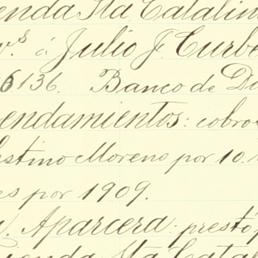 enda Sta Catalin
vs á Julio J. Curb
6136. Banco de D
endamientos: cobro
estino Moreno por 10.
es por 1909.
Aparcera: prestó
ienda Sta Catal